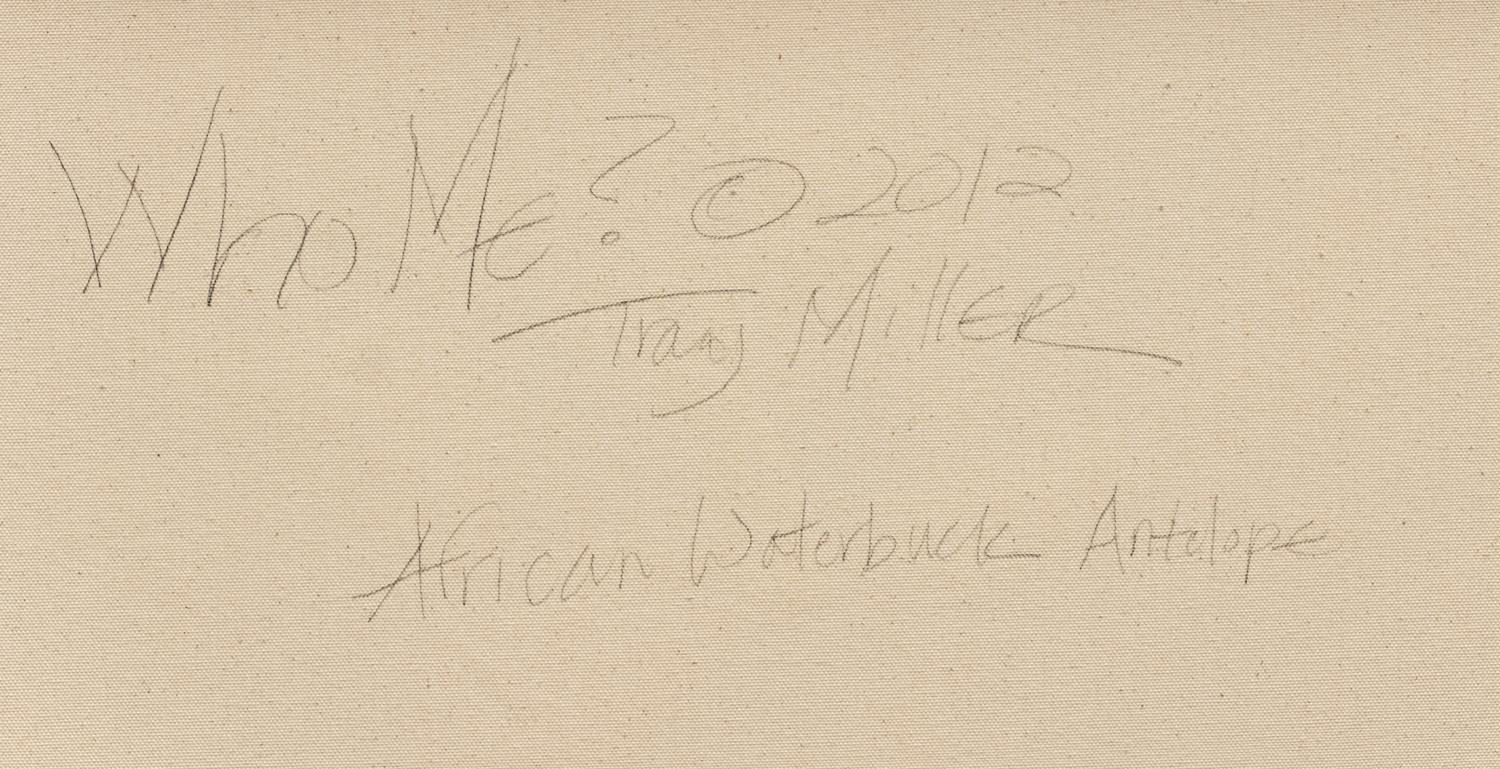 Who Me? © 2012
Tracy Miller
African Waterbuck Antelope